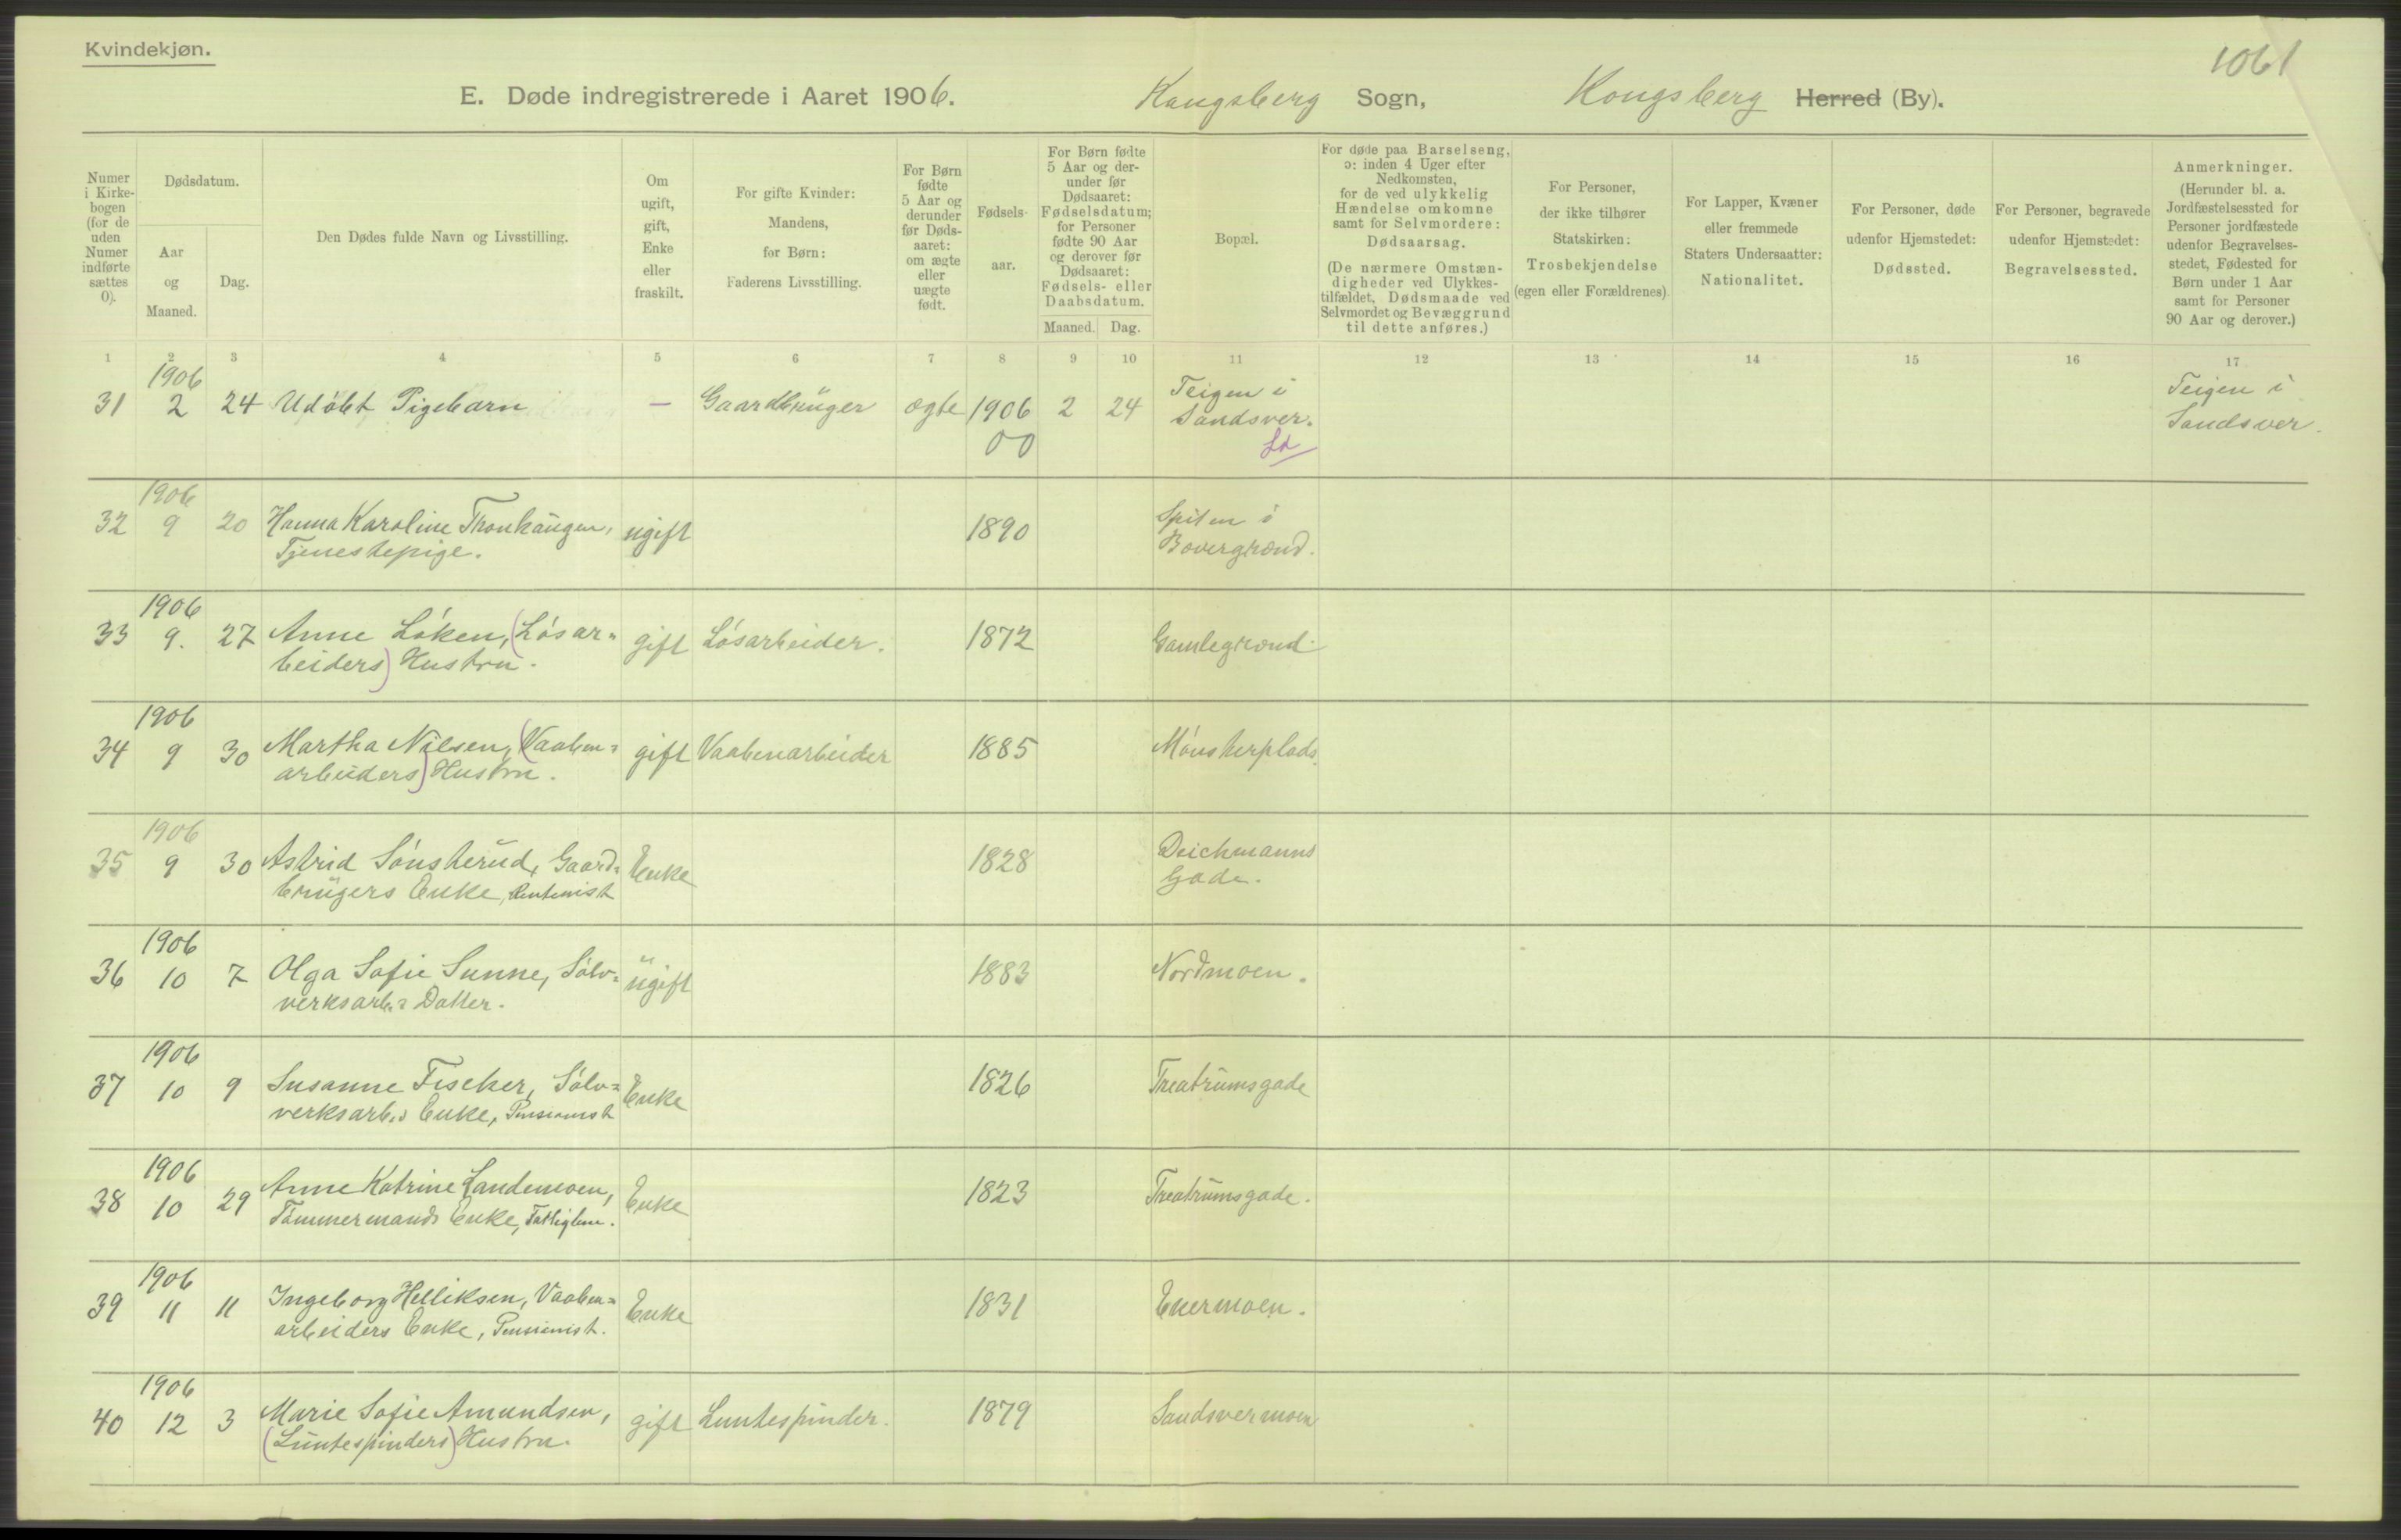 Kvindekjøn.
1061
E. Døde indregistrerede i Aaret 1906. Kongsberg Sogn, Kongsberg Herred (By).
Numer i Kirke-bogen (for de uden Numer indførte sættes 0).
Dødsdatum.
Aar og Maaned.
Dag.
Den Dødes fulde Navn og Livsstilling.
Om ugift, gift, Enke eller fraskilt.
For gifte Kvinder: Mandens, for Børn: Faderens Livsstilling.
For Børn fødte 5 Aar og derunder før Døds-aaret: om ægte eller uægte født.
Fødsels-aar.
For Børn fødte 5 Aar og der-under før Dødsaaret: Fødselsdatum; for Personer fødte 90 Aar og derover før Dødsaaret: Fødsels- eller Daabsdatum.
Maaned. Dag.
Bopæl.
For døde paa Barselseng, ɔ: inden 4 Uger efter Nedkomsten, for de ved ulykkelig Hændelse omkomne samt for Selvmordere: Dødsaarsag.
(De nærmere Omstæn-digheder ved Ulykkes-tilfældet, Dødsmaade ved Selvmordet og Bevæggrund til dette anføres.)
For Personer, der ikke tilhører Statskirken: Trosbekjendelse (egen eller Forældrenes).
For Lapper, Kvæner eller fremmede Staters Undersaatter: Nationalitet.
For Personer, døde udenfor Hjemstedet: Dødssted.
For Personer, begravede udenfor Hjemstedet: Begravelsessted.
Anmerkninger.
(Herunder bl. a. Jordfæstelsessted for Personer jordfæstede udenfor Begravelses-stedet, Fødested for Børn under 1 Aar samt for Personer 90 Aar og derover.)
1 2 3 4 5 6 7 8 9 10 11 12 13 14 15 16 17
1906
31 2 24 Udøbt Pigebarn — Gaardbruger ægte 1906 2 24 Teigen i Sandsver. Teigen i Sandsver.
00
1906
32 9 20 Hanna Karoline Thonhaugen, ugift 1890 Spiten i
Tjenestepige. Bovergrend.
1906
33 9. 27 Anne Løken, (Løsar- gift Løsarbeider. 1872 Gamlegrend
beiders) Hustru.
1906
34 9 30 Martha Nilsen, (Vaaben- gift Vaabenarbeider 1885 Mønsterplads.
arbeiders) Hustru.
1906
35 9 30 Astrid Sønsterud, Gaard- Enke 1828 Deichmanns
brugers Enke, Rentenist Gade.
1906
36 10 7 Olga Sofie Sunne, Sølv- ugift 1883 Nordmoen.
verksarb.s Datter.
1906
37 10 9 Susanne Fischer, Sølv- Enke 1826 Treatrumsgade
verksarb.s Enke, Pensionist
1906
38 10 29 Anne Katrine Landemoen, Enke 1823 Treatrumsgade.
Tømmermands Enke, Fattiglem.
1906
39 11 11 Ingeborg Helliksen, Vaaben- Enke 1831 Ekermoen.
arbeiders Enke, Pensionist.
1906
40 12 3 Marie Sofie Amundsen, gift Luntespinder. 1879 Sandsvermoen
(Luntespinders) Hustru.